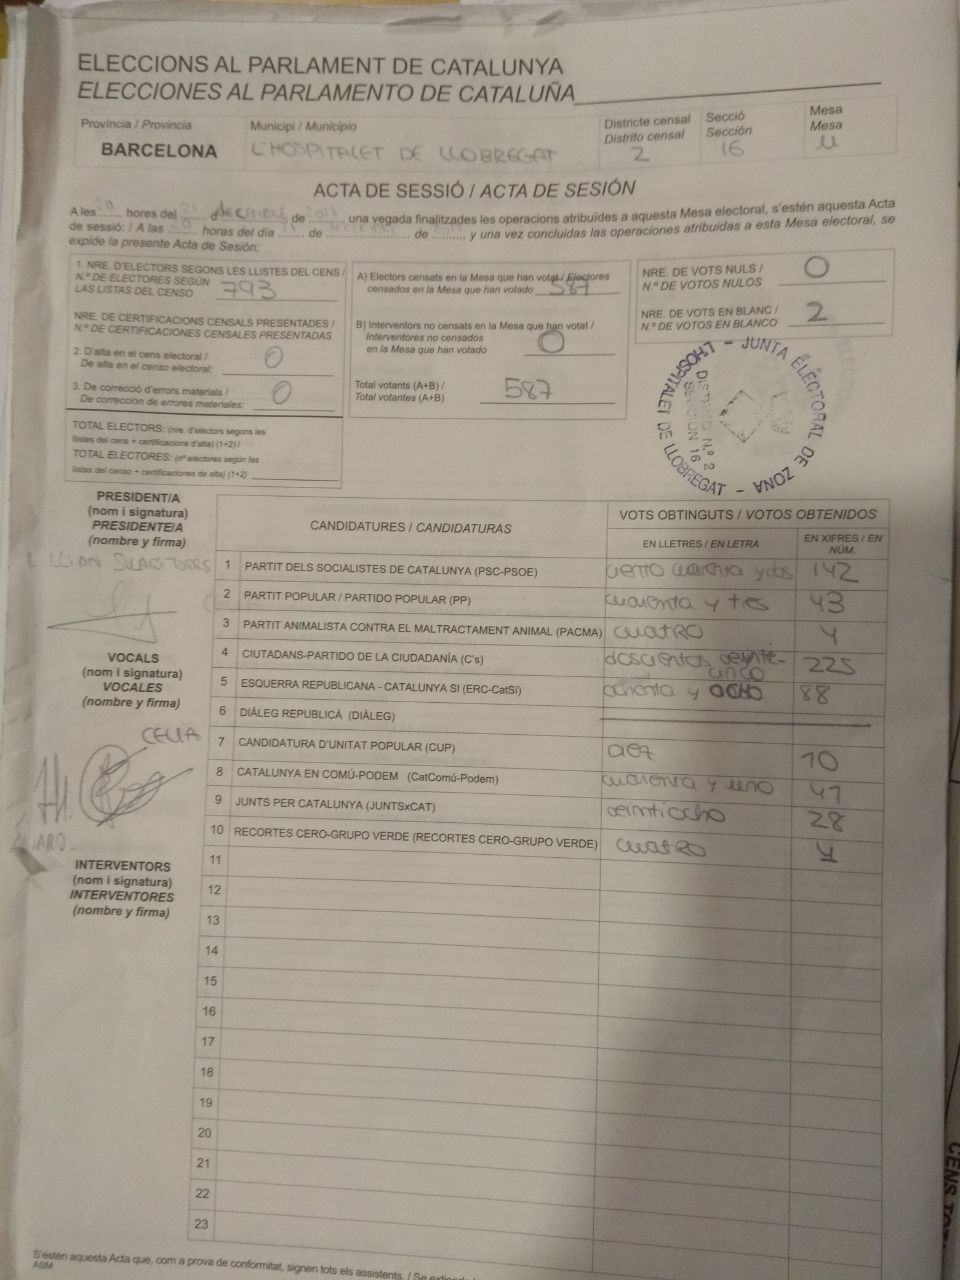 ELECCIONS AL PARLAMENT DE CATALUNYA
ELECCIONES AL PARLAMENTO DE CATALUÑA
Província / Provincia
BARCELONA
Municipi / Municipio
L'HOSPITALET DE LLOBREGAT
Districte censal
Distrito censal
2
Secció
Sección
16
Mesa
Mesa
U
ACTA DE SESSIÓ / ACTA DE SESIÓN
A les 20 hores del 21 d DECEMBRE de 2017, una vegada finalitzades les operacions atribuïdes a aquesta Mesa electoral, s'estén aquesta Acta
de sessió: / A las 20 horas del día de de , y una vez concluidas las operaciones atribuidas a esta Mesa electoral, se
expide la presente Acta de Sesión:
1. NRE. D'ELECTORS SEGONS LES LLISTES DEL CENS /
N.º DE ELECTORES SEGÚN
LAS LISTAS DEL CENSO 793
NRE. DE CERTIFICACIONS CENSALS PRESENTADES /
N.º DE CERTIFICACIONES CENSALES PRESENTADAS
2. D'alta en el cens electoral /
De alta en el censo electoral: 0
3. De correcció d'errors materials /
De corrección de errores materiales: 0
TOTAL ELECTORS: (nre. d'electors segons les
llistes del cens + certificacions d'alta) (1+2) /
TOTAL ELECTORES: (nº electores según las
listas del censo + certificaciones de alta) (1+2)
A) Electors censats en la Mesa que han votat / Electores
censados en la Mesa que han votado 587
B) Interventors no censats en la Mesa que han votat /
Interventores no censados
en la Mesa que han votado 0
Total votants (A+B) /
Total votantes (A+B) 587
NRE. DE VOTS NULS /
N.º DE VOTOS NULOS 0
NRE. DE VOTS EN BLANC /
N.º DE VOTOS EN BLANCO 2
JUNTA ELECTORAL DE ZONA - L'HOSPITALET DE LLOBREGAT -
DISTRITO N.º 2
SECCION 16
PRESIDENT/A
(nom i signatura)
PRESIDENTE/A
(nombre y firma)
VOCALS
(nom i signatura)
VOCALES
(nombre y firma)
CELIA
INTERVENTORS
(nom i signatura)
INTERVENTORES
(nombre y firma)
CANDIDATURES / CANDIDATURAS
VOTS OBTINGUTS / VOTOS OBTENIDOS
EN LLETRES / EN LETRA
EN XIFRES / EN NÚM.
1 PARTIT DELS SOCIALISTES DE CATALUNYA (PSC-PSOE) ciento cuarenta y dos 142
2 PARTIT POPULAR / PARTIDO POPULAR (PP) cuarenta y tres 43
3 PARTIT ANIMALISTA CONTRA EL MALTRACTAMENT ANIMAL (PACMA) cuatro 4
4 CIUTADANS-PARTIDO DE LA CIUDADANÍA (C's) doscientos veinte-cinco 225
5 ESQUERRA REPUBLICANA - CATALUNYA SI (ERC-CatSí) ochenta y ocho 88
6 DIÀLEG REPUBLICÀ (DIÀLEG)
7 CANDIDATURA D'UNITAT POPULAR (CUP) diez 10
8 CATALUNYA EN COMÚ-PODEM (CatComú-Podem) cuarenta y uno 41
9 JUNTS PER CATALUNYA (JUNTSxCAT) veintiocho 28
10 RECORTES CERO-GRUPO VERDE (RECORTES CERO-GRUPO VERDE) cuatro 4
11
12
13
14
15
16
17
18
19
20
21
22
23
S'estén aquesta Acta que, com a prova de conformitat, signen tots els assistents. / Se
ASM